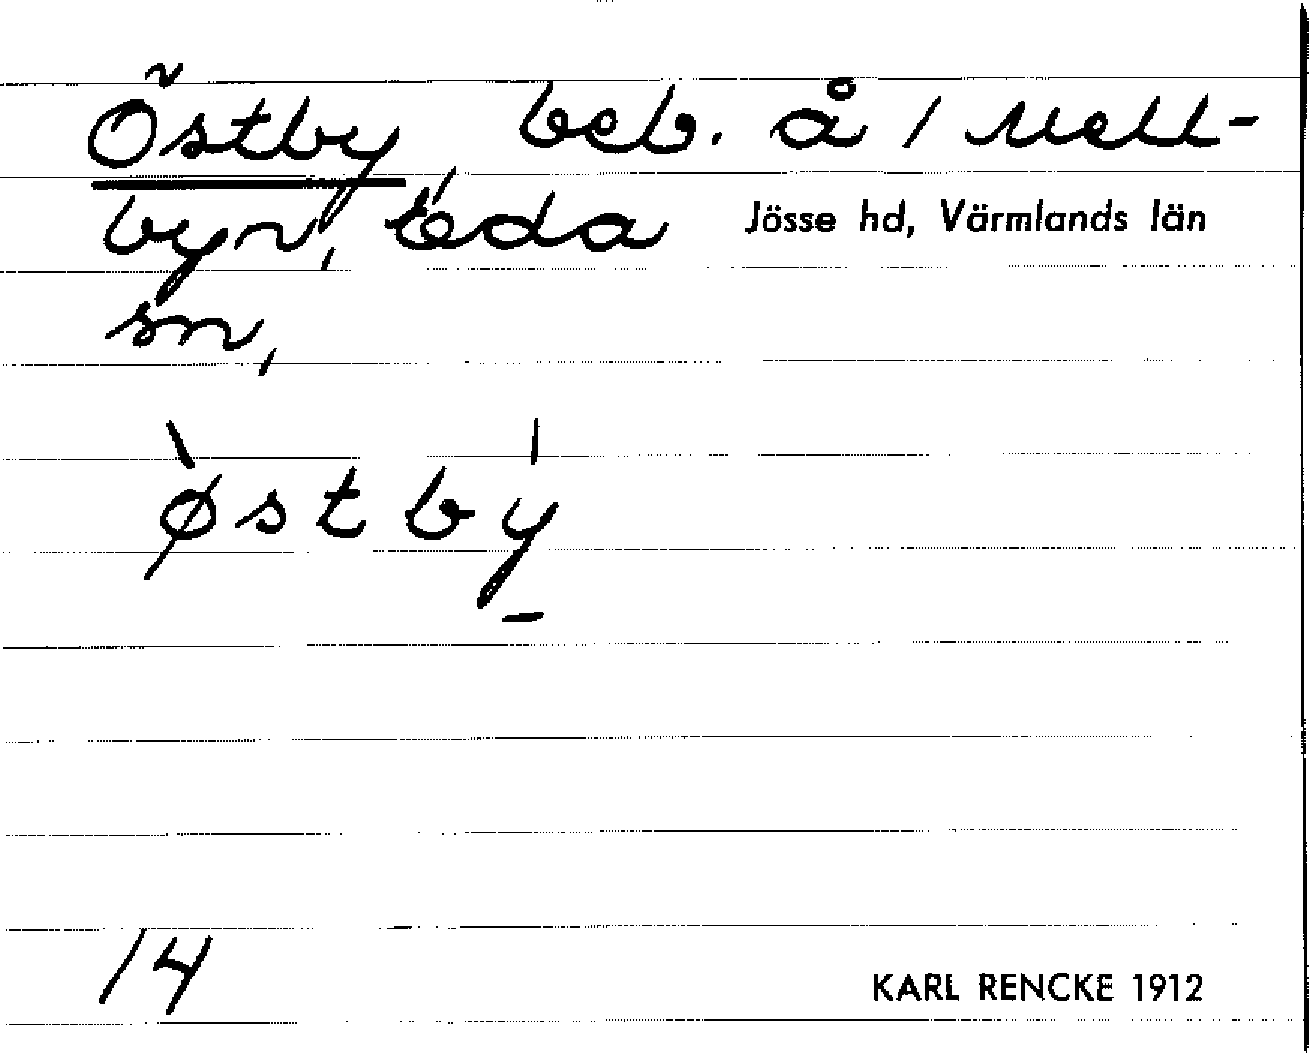 Östby beb. å 1 Mell-
byn, Eda Jösse hd, Värmlands län
sn,
\ |
østby
14
KARL RENCKE 1912